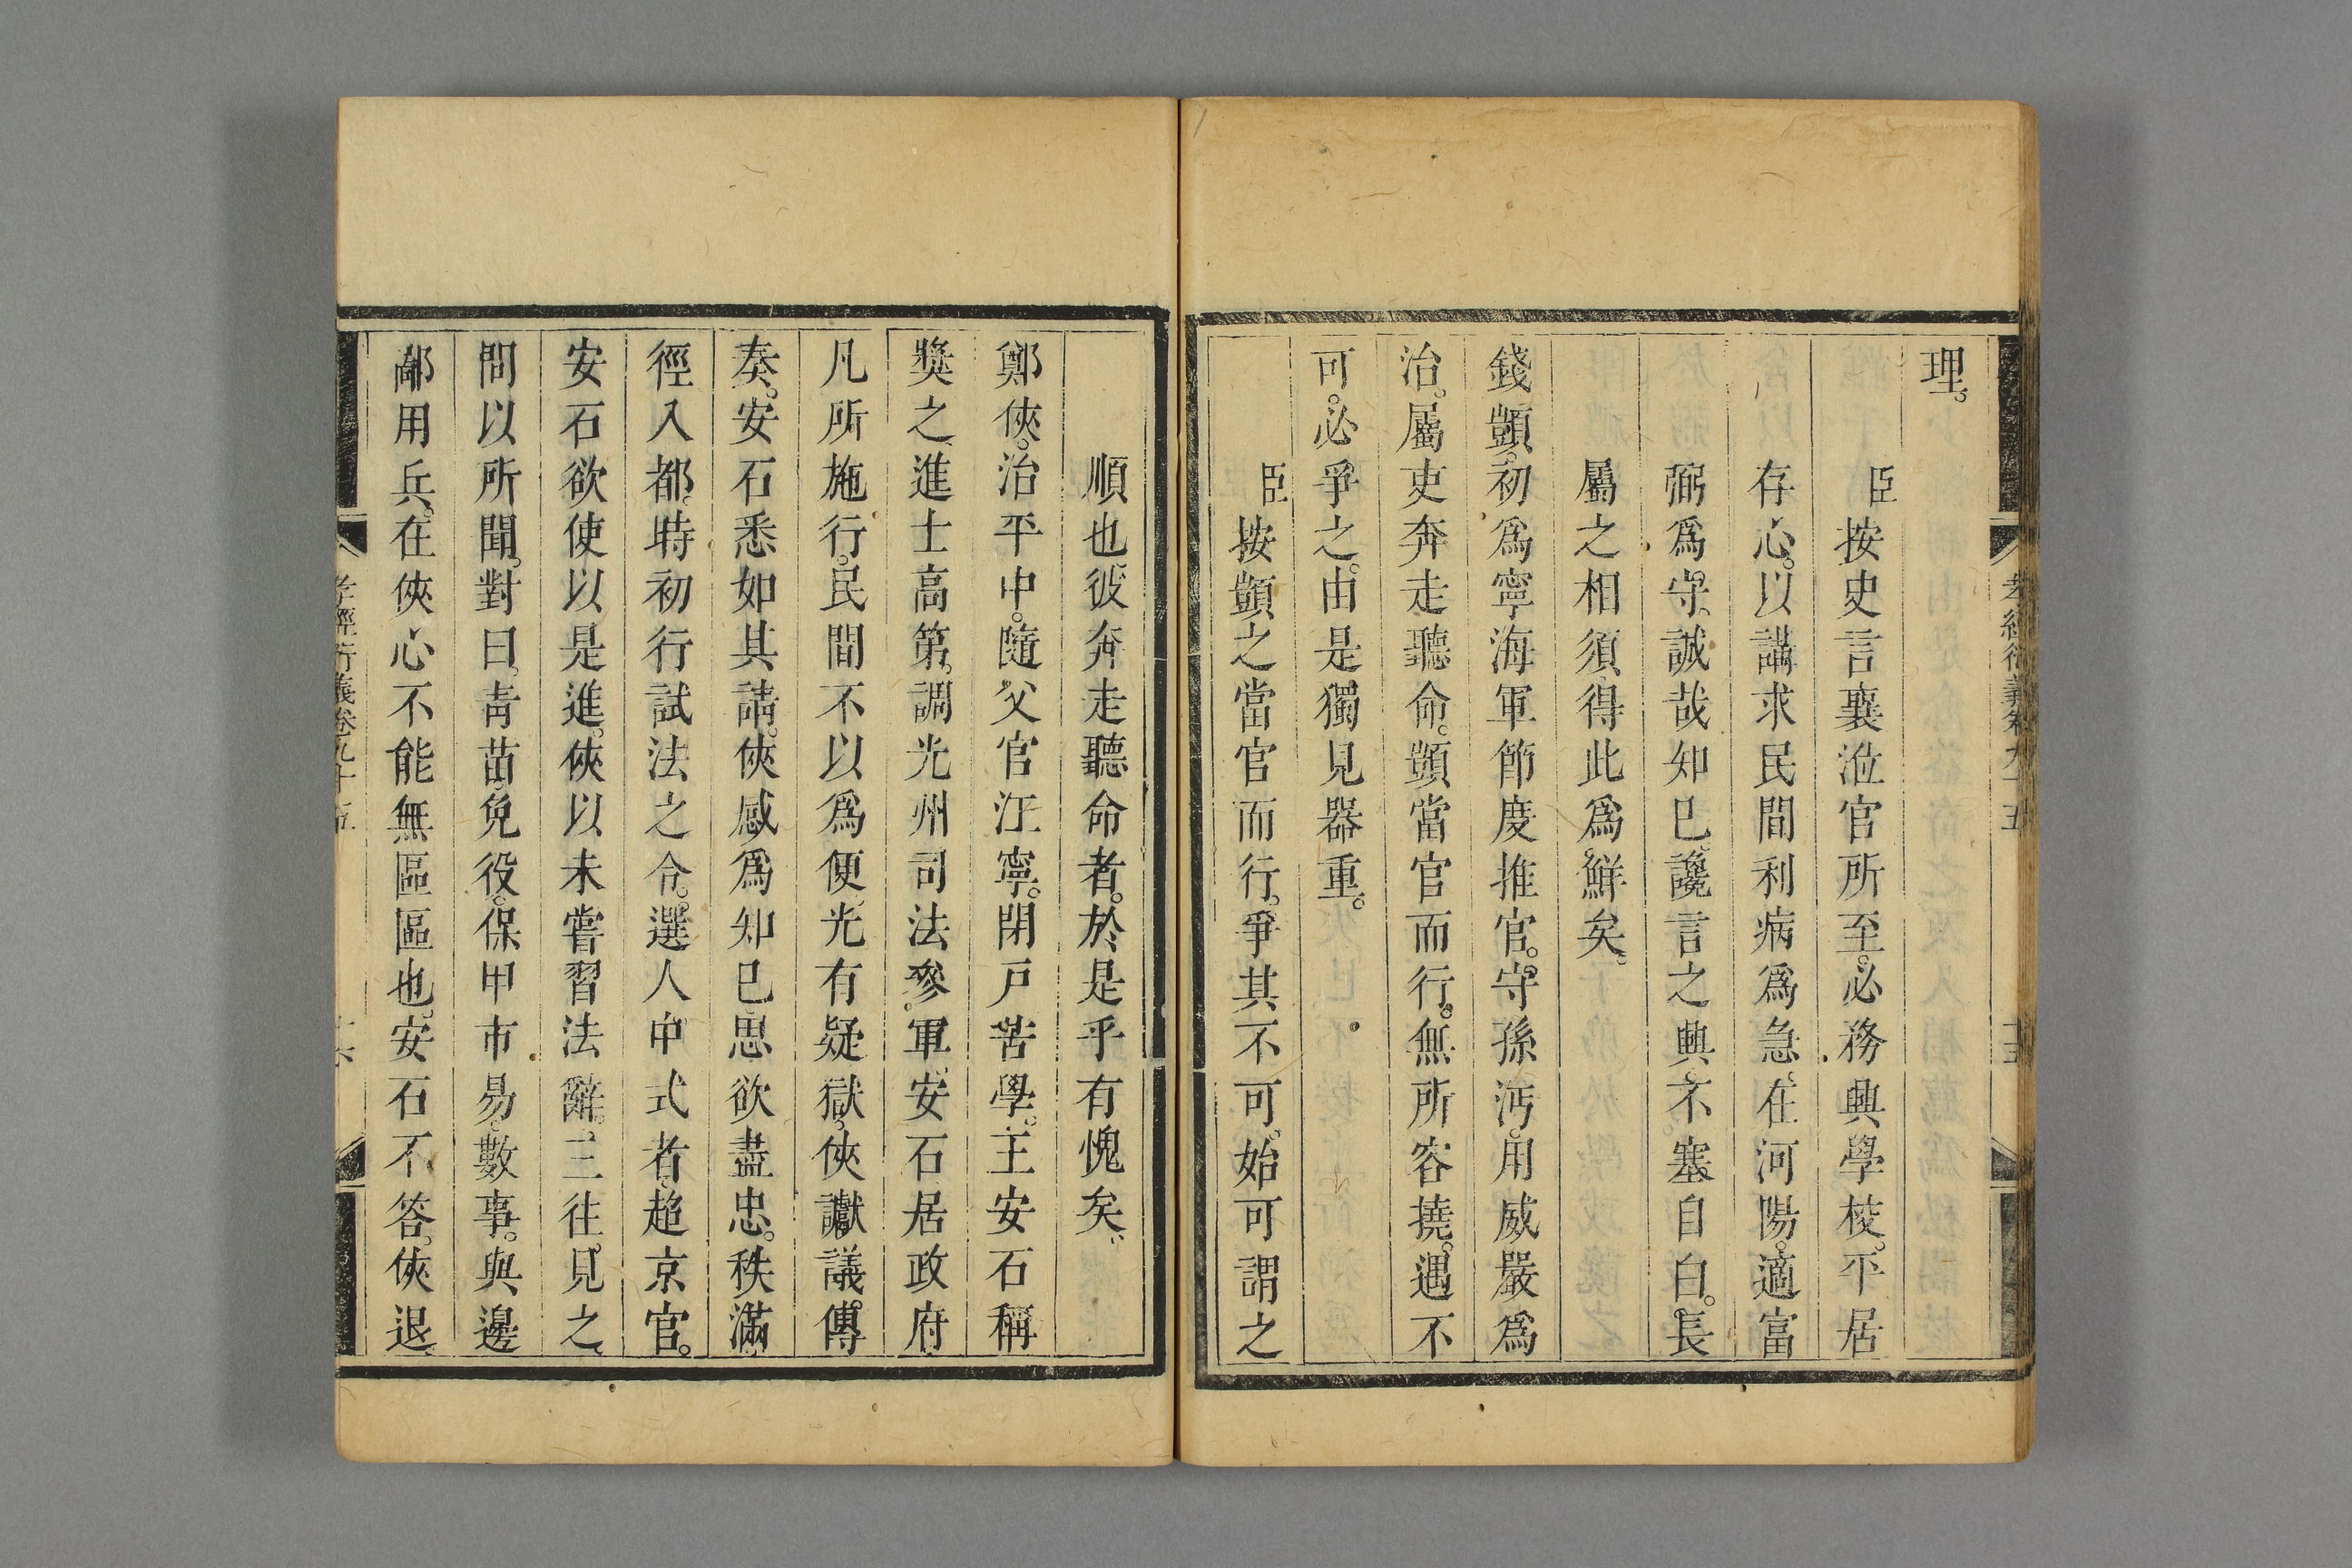 理。
臣按史言襄涖官所至。必務興學校。平居
存心。以講求民間利病爲急。在河陽。適富
弼爲守。誠哉知已。讒言之興。不塞自白。長
屬之相須。得此爲鮮矣。
錢顗。初爲寧海軍節度推官。守孫沔。用威嚴爲
治。屬吏奔走聽命。顗當官而行。無所容撓。遇不
可。必爭之。由是獨見器重。
臣按顗之當官而行。爭其不可。始可謂之
順也。彼奔走聽命者。於是乎有愧矣。
鄭俠。治平中。隨父官江寧。閉戸苦學。王安石稱
奬之。進士高第。調光州司法參軍。安石居政府
凡所施行。民間不以爲便。光有疑獄。俠讞議傳
奏。安石悉如其請。俠感爲知已。思欲盡忠。秩滿
徑入都。時初行試法之令。選人中式者。超京官。
安石欲使以是進。俠以未嘗習法辭。三往見之。
問以所聞。對曰。靑苗。免役。保甲市易。數事。與邊
鄙用兵。在俠心不能無區區也。安石不答。俠退。
孝經衍義卷九十五